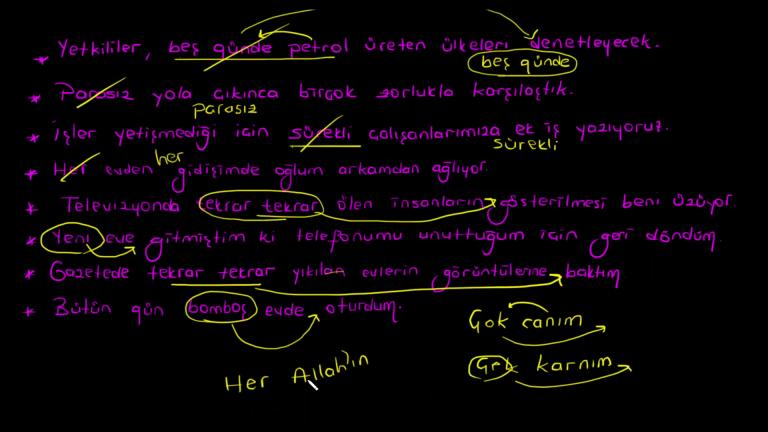 * Yetkililer, beş günde petrol üreten ülkeleri denetleyecek.
beş günde
* Parasız yola çıkınca birçok zorlukla karşılaştık.
parasız
* İşler yetişmediği için sürekli çalışanlarımıza ek iş yazıyoruz.
sürekli
her
* Her evden gidişimde oğlum arkamdan ağlıyor.
* Televizyonda tekrar tekrar ölen insanların gösterilmesi beni üzüyor.
* Yeni eve gitmiştim ki telefonumu unuttuğum için geri döndüm.
* Gazetede tekrar tekrar yıkılan evlerin görüntülerine baktım
* Bütün gün bomboş evde oturdum.
Çok canım
Her Allah'ın
karnım